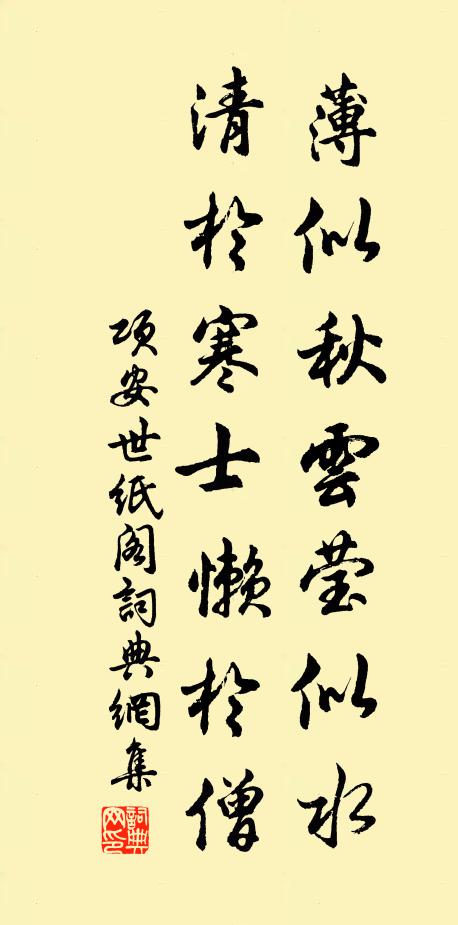 薄似秋雲瑩似水
清於寒士懶於僧
項安世紙閣詞典網集
詞典网印